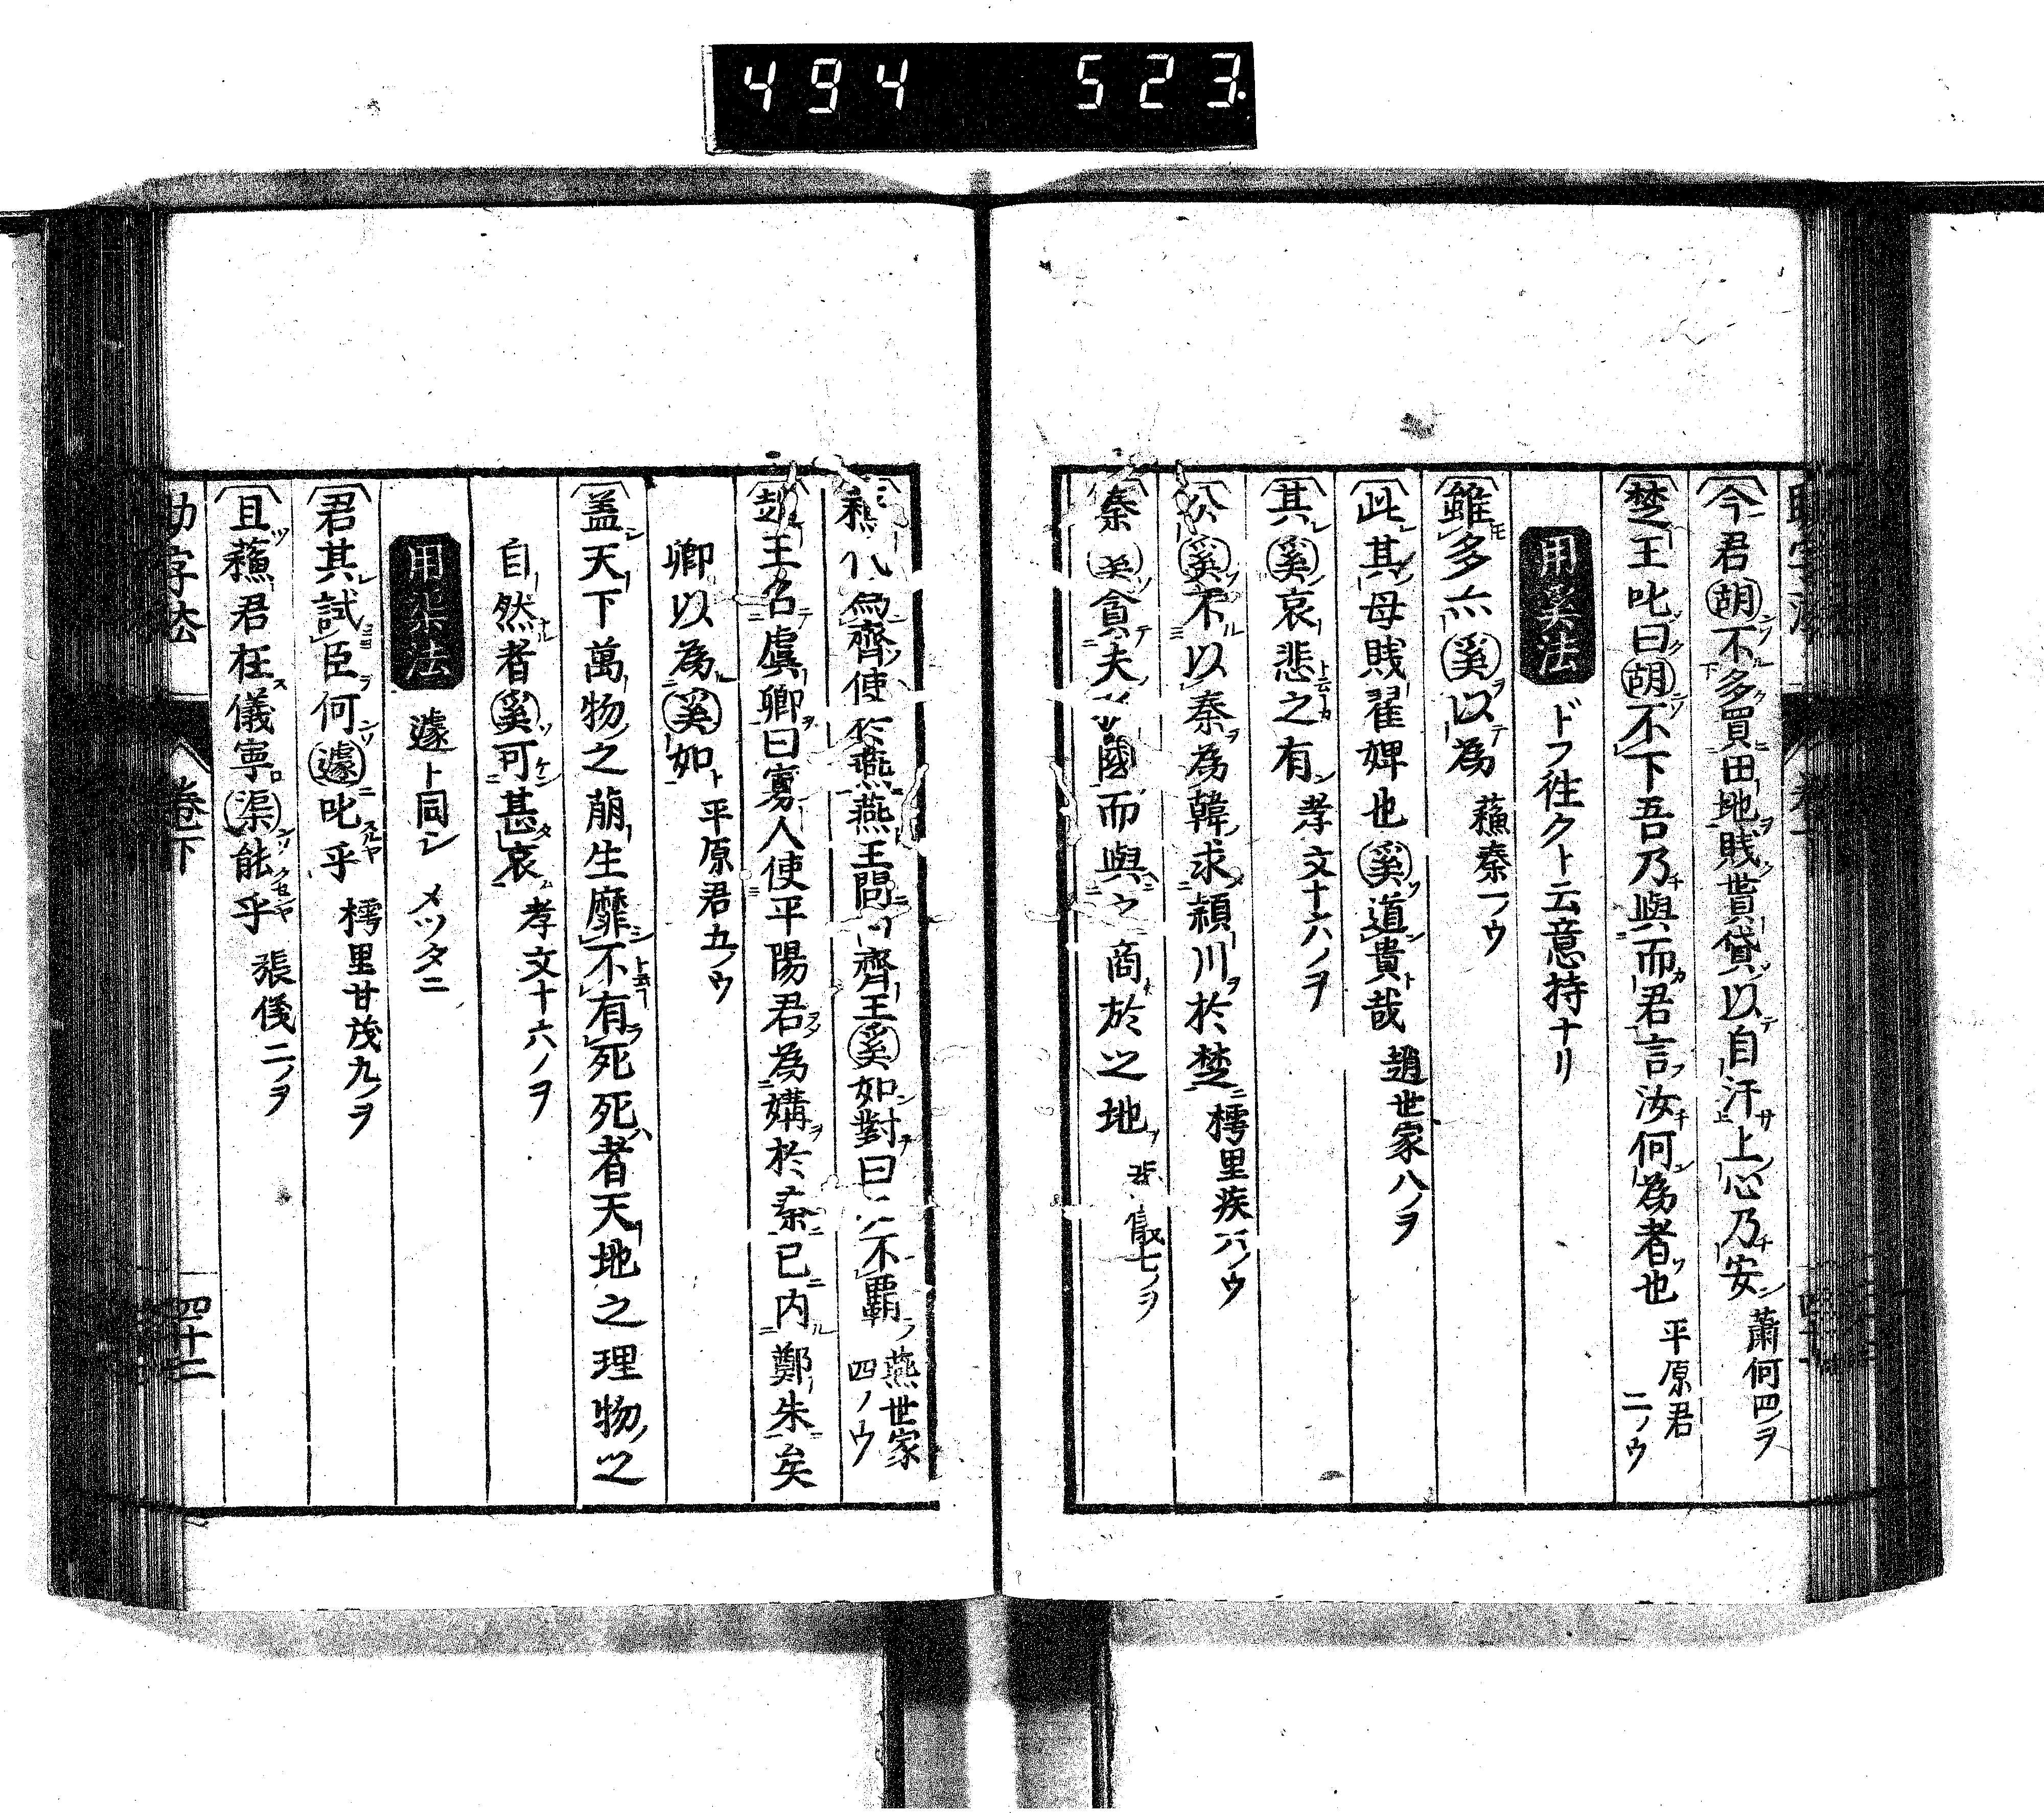 494 523
今君胡不多買田地賤貰貸以自汗上心乃安 蕭何四ノヲ
楚王叱曰胡不下吾乃與而君言汝何為者也 平原君二ノウ
用奚法 ドフ往クト云意持ナリ
雖多亦奚以為 蘓秦一ノウ
此其母賎翟婢也奚道貴哉 趙世家八ノヲ
其奚哀悲之有 孝文十六ノヲ
公奚不以秦為韓求潁川於楚 樗里疾八ノウ
秦奚貪夫 國而與之商於之地 七ノヲ
蘓代為齊使於燕燕王問曰齊王奚如對曰必不覇 燕世家四ノウ
趙王召虞卿曰寡人使平陽君為媾於秦已内鄭朱矣
卿以為奚如 平原君五ノウ
盖天下萬物之萠生靡不有死死者天地之理物之
自然者奚可甚哀 孝文十六ノヲ
用渠法 遽ト同シ メツタニ
君其試臣何遽叱乎 樗里甘茂九ノヲ
且蘓君在儀寧渠能乎 張儀二ノヲ
助字法 卷下 四十二